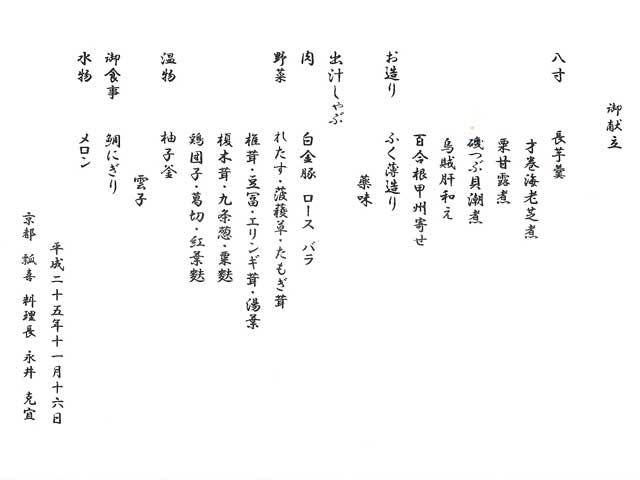 御献立
八寸　長芋羹
才巻海老芝煮
栗甘露煮
磯つぶ貝潮煮
烏賊肝和え
百合根甲州寄せ
お造り　ふく薄造り
薬味
出汁しゃぶ
肉　白金豚　ロース　バラ
野菜　れたす・菠薐草・たもぎ茸
椎茸・豆冨・エリンギ茸・湯葉
榎木茸・九条葱・粟麩
鶏団子・葛切・紅葉麩
温物　柚子釜
雲子
御食事　鯛にぎり
水物　メロン
平成二十五年十一月十六日
京都　瓢喜　料理長　永井　克宜